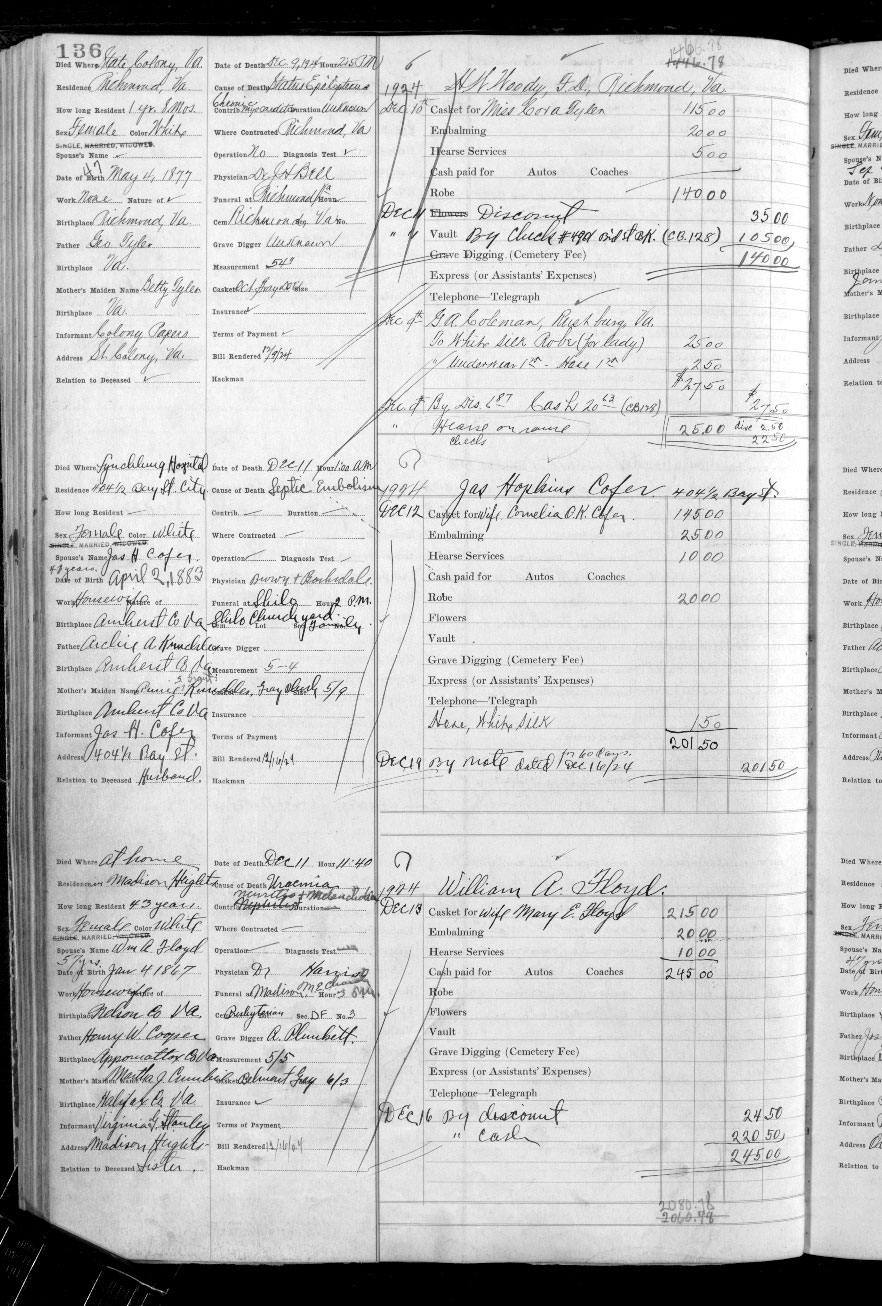 136
1466.78
1446.78
Died Where State Colony, Va.
Residence Richmond, Va
How long Resident 1 yr. 8 Mos.
Sex Female Color White
SINGLE, MARRIED, WIDOWED
Spouse's Name
47
Date of Birth May 4, 1877
Work None Nature of
Birthplace Richmond, Va.
Father Geo Tyler
Birthplace Va.
Mother's Maiden Name Betty Tyler
Birthplace Va.
Informant Colony Papers
Address St. Colony, Va.
Relation to Deceased
Date of Death Dec. 9, 1924 Hour 2:25 P.M
Cause of Death Status Epilepticus
Chronic
Contrib. Myocarditis Duration Unknown
Where Contracted Richmond, Va
Operation No Diagnosis Test
Physician Dr. J H Bell
Funeral at Richmond, Va Hour
Cem Richmond, Va. No.
Grave Digger Unknown
Measurement 54"
Casket Oct Gray Size
Insurance
Terms of Payment
Bill Rendered 12/9/24
Hackman
6
1924 H. W. Woody, F.D., Richmond, Va.
Dec. 10th Casket for Miss Cora Tyler 115 00
Embalming 20 00
Hearse Services 5 00
Cash paid for Autos Coaches
Robe 140 00
Dec 11 Flowers Discount 35 00
" " Vault By Check #490 B'd St BK. (C.B.128) 105 00
Grave Digging (Cemetery Fee) 140 00
Express (or Assistants' Expenses)
Telephone—Telegraph
Dec. 9th G. A. Coleman, Rustburg, Va.
To White Silk Robe (for lady) 25 00
" Underwear 1 00 - Hose 1 50 2 50
$27.50
Dec. 9th By Dis. 6 87 Cash 20 63 (CB128) $27.50
" Hearse on same 25.00 disc 2.50
checks 22.50
Died Where Lynchburg Hospital
Residence 404 1/2 Bay St. City
How long Resident
Sex Female Color White
SINGLE, MARRIED, WIDOWED
Spouse's Name Jas H Cofer.
years.
Date of Birth April 2, 1883
Work Housewife Nature of
Birthplace Amherst Co Va
Father Archie A
Birthplace Amherst Co. Va
Mother's Maiden Name
Birthplace Amherst Co Va
Informant Jas H. Cofer
Address 404 1/2 Bay St.
Relation to Deceased Husband.
Date of Death Dec 11 Hour 1:00 A.M
Cause of Death Septic Embolism
Contrib. Duration
Where Contracted
Operation Diagnosis Test
Physician Brown & Barksdale
Funeral at Shilo Hour 2 P.M.
Shilo Churchyard
Cem. Lot Sec. Family
Grave Digger
Measurement 5-4
Gray Plush 5/9
Insurance
Terms of Payment
Bill Rendered 12/16/24
Hackman
7
1924 Jas Hopkins Cofer 404 1/2 Bay St.
Dec 12 Casket for Wife Cornelia O.K. Cofer. 145 00
Embalming 25 00
Hearse Services 10 00
Cash paid for Autos Coaches
Robe 20 00
Flowers
Vault
Grave Digging (Cemetery Fee)
Express (or Assistants' Expenses)
Telephone—Telegraph
Hose, White Silk 1 50
201 50
for 60 days.
Dec 19 By Note dated Dec 16/24 201 50
Died Where at home
Residence Madison Heights
How long Resident 43 years.
Sex Female Color White
SINGLE, MARRIED, WIDOWED
Spouse's Name Wm A Floyd
57 yrs.
Date of Birth Jan 4 1867
Work Housewife Nature of
Birthplace Nelson Co Va
Father Henry W. Cooper
Birthplace Appomattox Co Va
Mother's Maiden Name Martha J.
Birthplace Halifax Co. Va
Informant Virginia Hanley
Address Madison Heights
Relation to Deceased Sister.
Date of Death Dec 11 Hour 11:40
Cause of Death Uraemia
Neuritis & Melancholia
Contrib. Nephritis Duration
Where Contracted
Operation Diagnosis Test
Physician Dr Harrison
Funeral at Madison M E Church Hour 3 P.M.
Cem Presbyterian Lot Sec. DF No. 3
Grave Digger A. Plunkett.
Measurement 5/5
Casket Belmont Gray 6/3
Insurance
Terms of Payment
Bill Rendered 12/16/24
Hackman
7
1924 William A. Floyd.
Dec 13 Casket for Wife Mary E. Floyd 215 00
Embalming 20 00
Hearse Services 10 00
Cash paid for Autos Coaches 245 00
Robe
Flowers
Vault
Grave Digging (Cemetery Fee)
Express (or Assistants' Expenses)
Telephone—Telegraph
Dec. 16 By discount 24 50
" cash 220 50
245 00
2080.78
2060.78